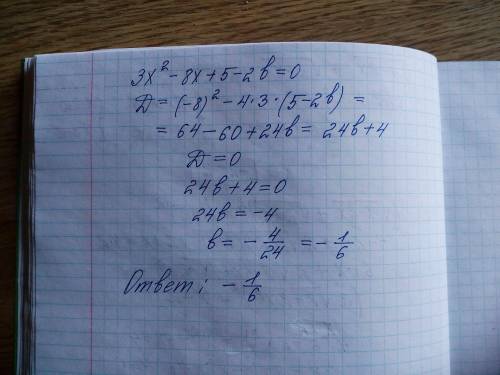 3x² - 8x + 5 - 2в = 0
D = (-8)² - 4·3·(5-2в) =
= 64 - 60 + 24в = 24в + 4
D = 0
24в + 4 = 0
24в = -4
в = - 4/24 = - 1/6
Ответ: - 1/6